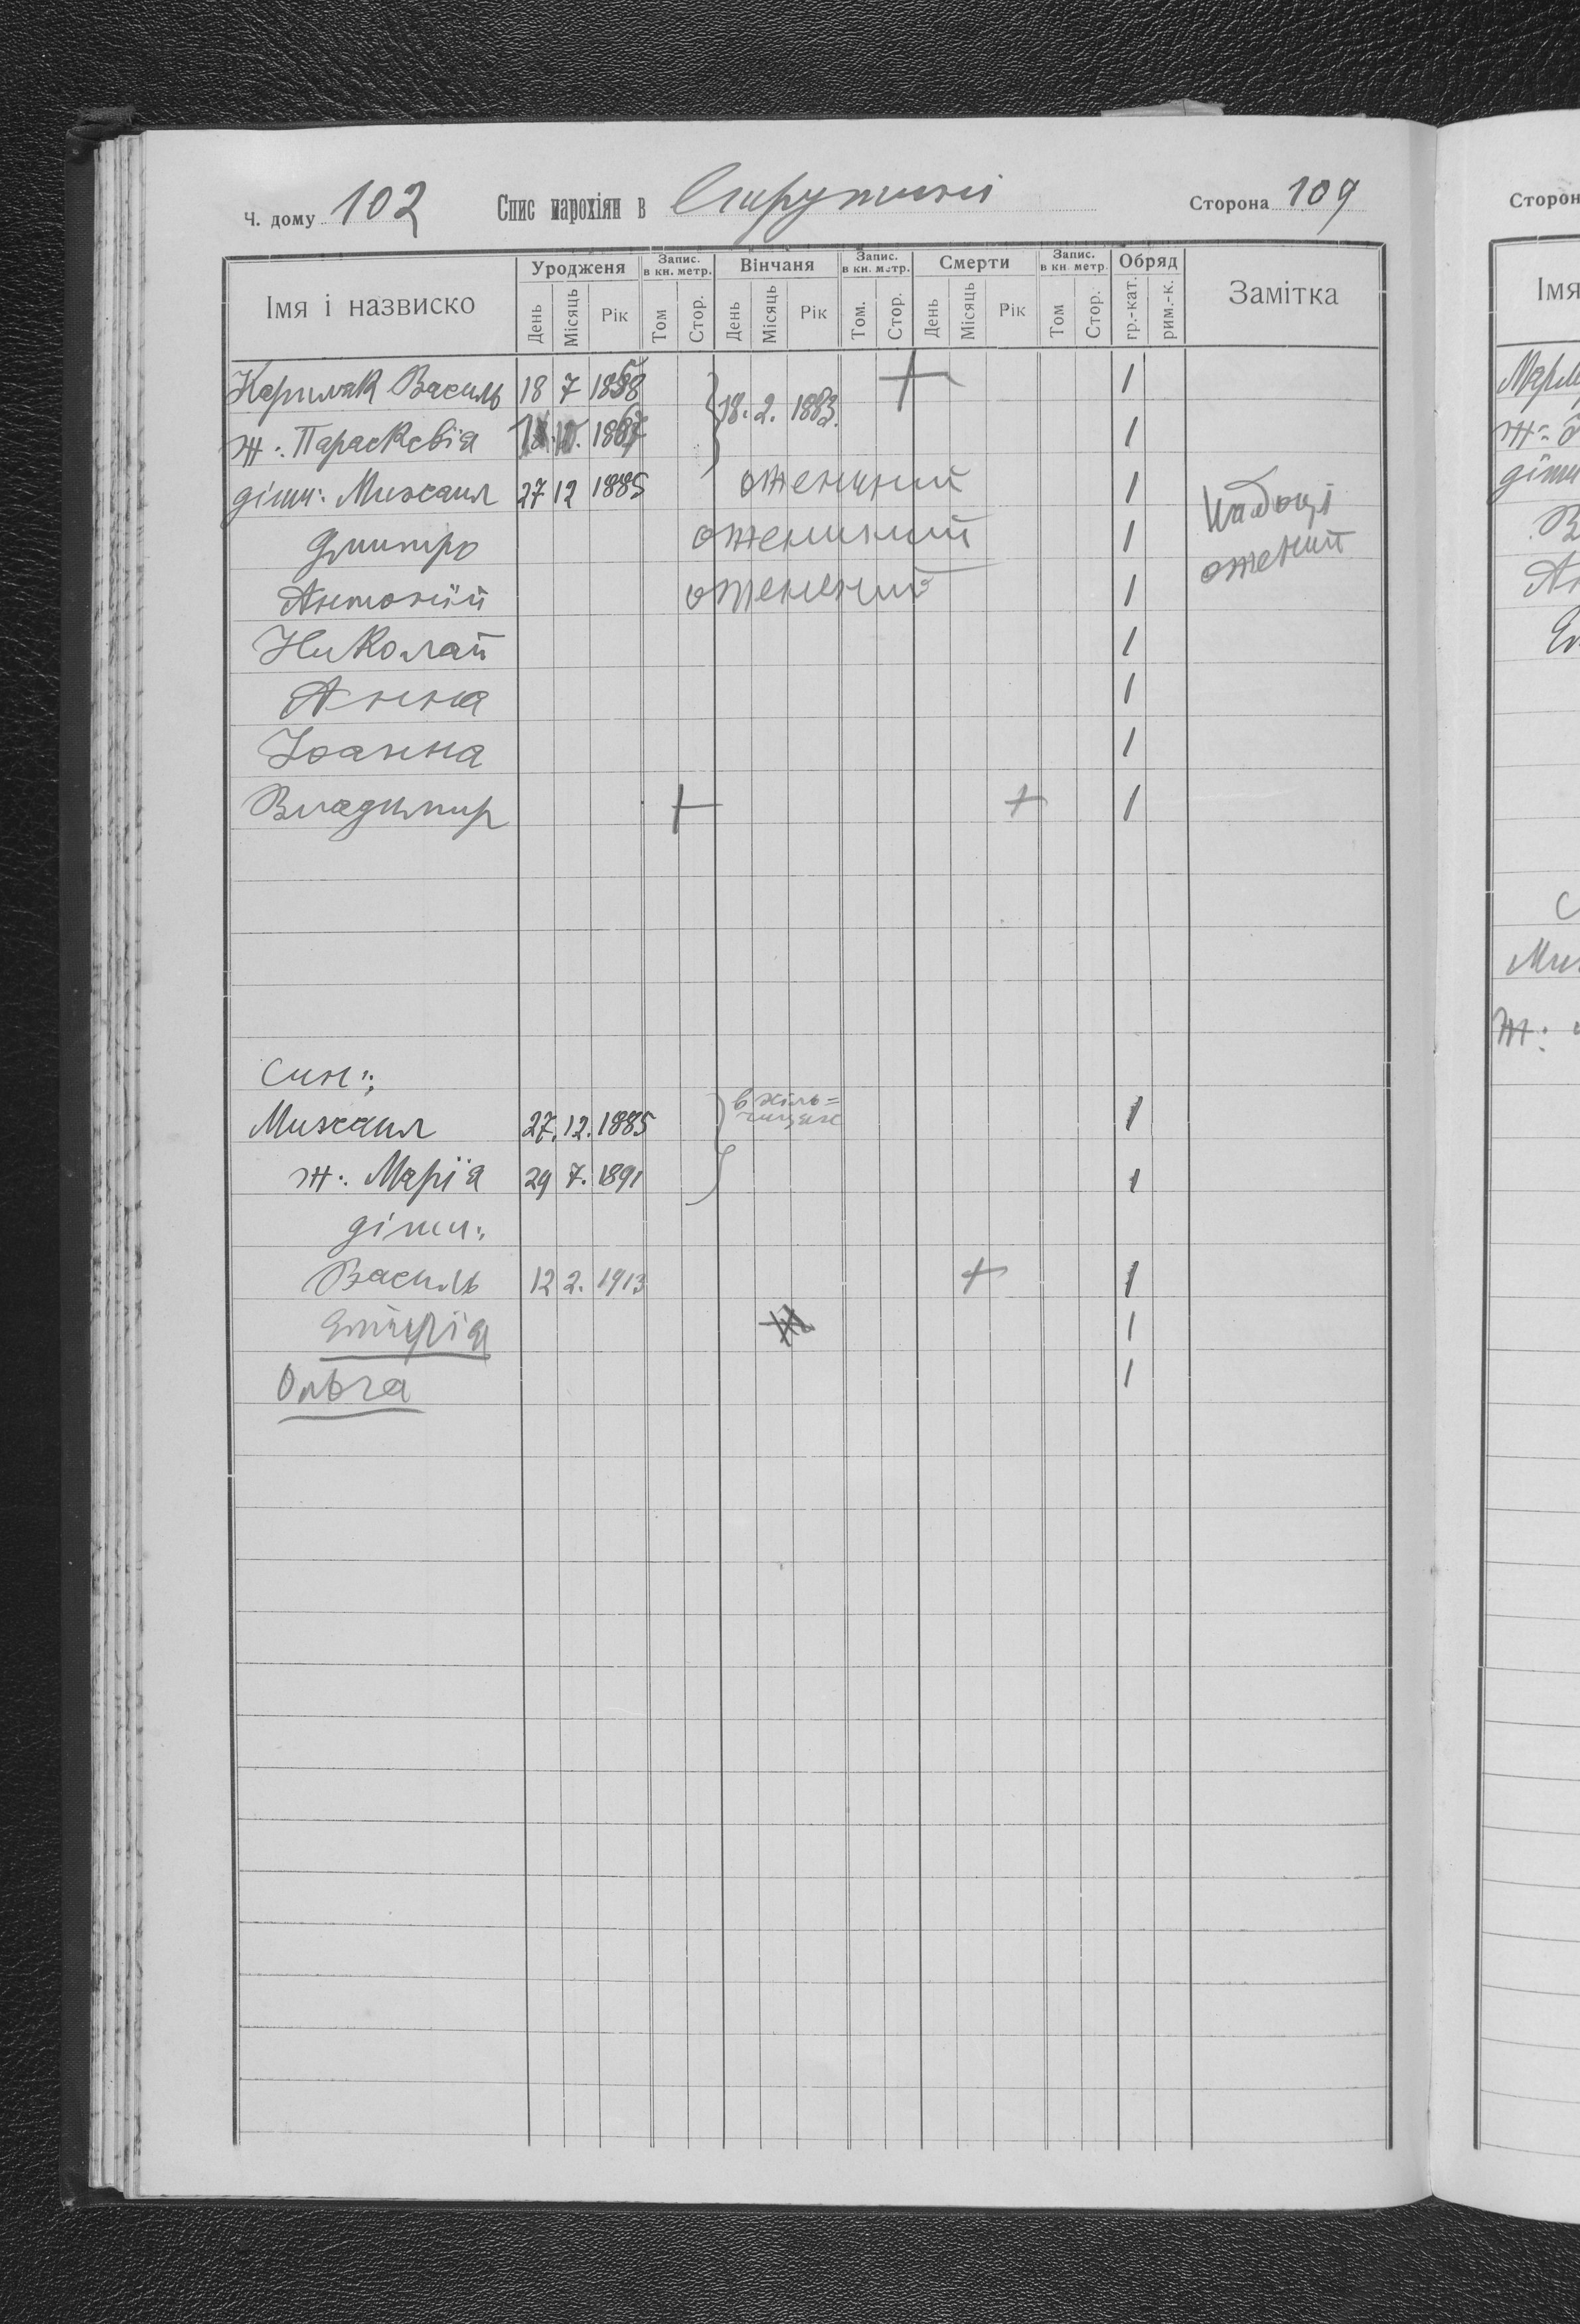 Ч. дому 102 Спис парохіян в Сторона 109
Імя і назвиско Уродженя Запис. в кн. метр. Вінчаня Запис. в кн. метр. Смерти Запис. в кн. метр. Обряд Замітка
День Місяць Рік Том Стор. День Місяць Рік Том. Стор. День Місяць Рік Том Стор. гр.-кат. рим.-к.
Василь 18 7 18. 2. 1883. + 1
ж: Параскевія 1
діти: Михаил 27 12 1885 1
Дмитро 1
Антоній 1
Николай 1
Анна 1
Іоанна 1
Владимир + + 1
син:
Михаил 27. 12. 1885 в 1
ж: Марія 29 7. 1891 1
діти:
Василь 12 2. 1913 + 1
1
Ольга 1
Сторон
Імя
діти